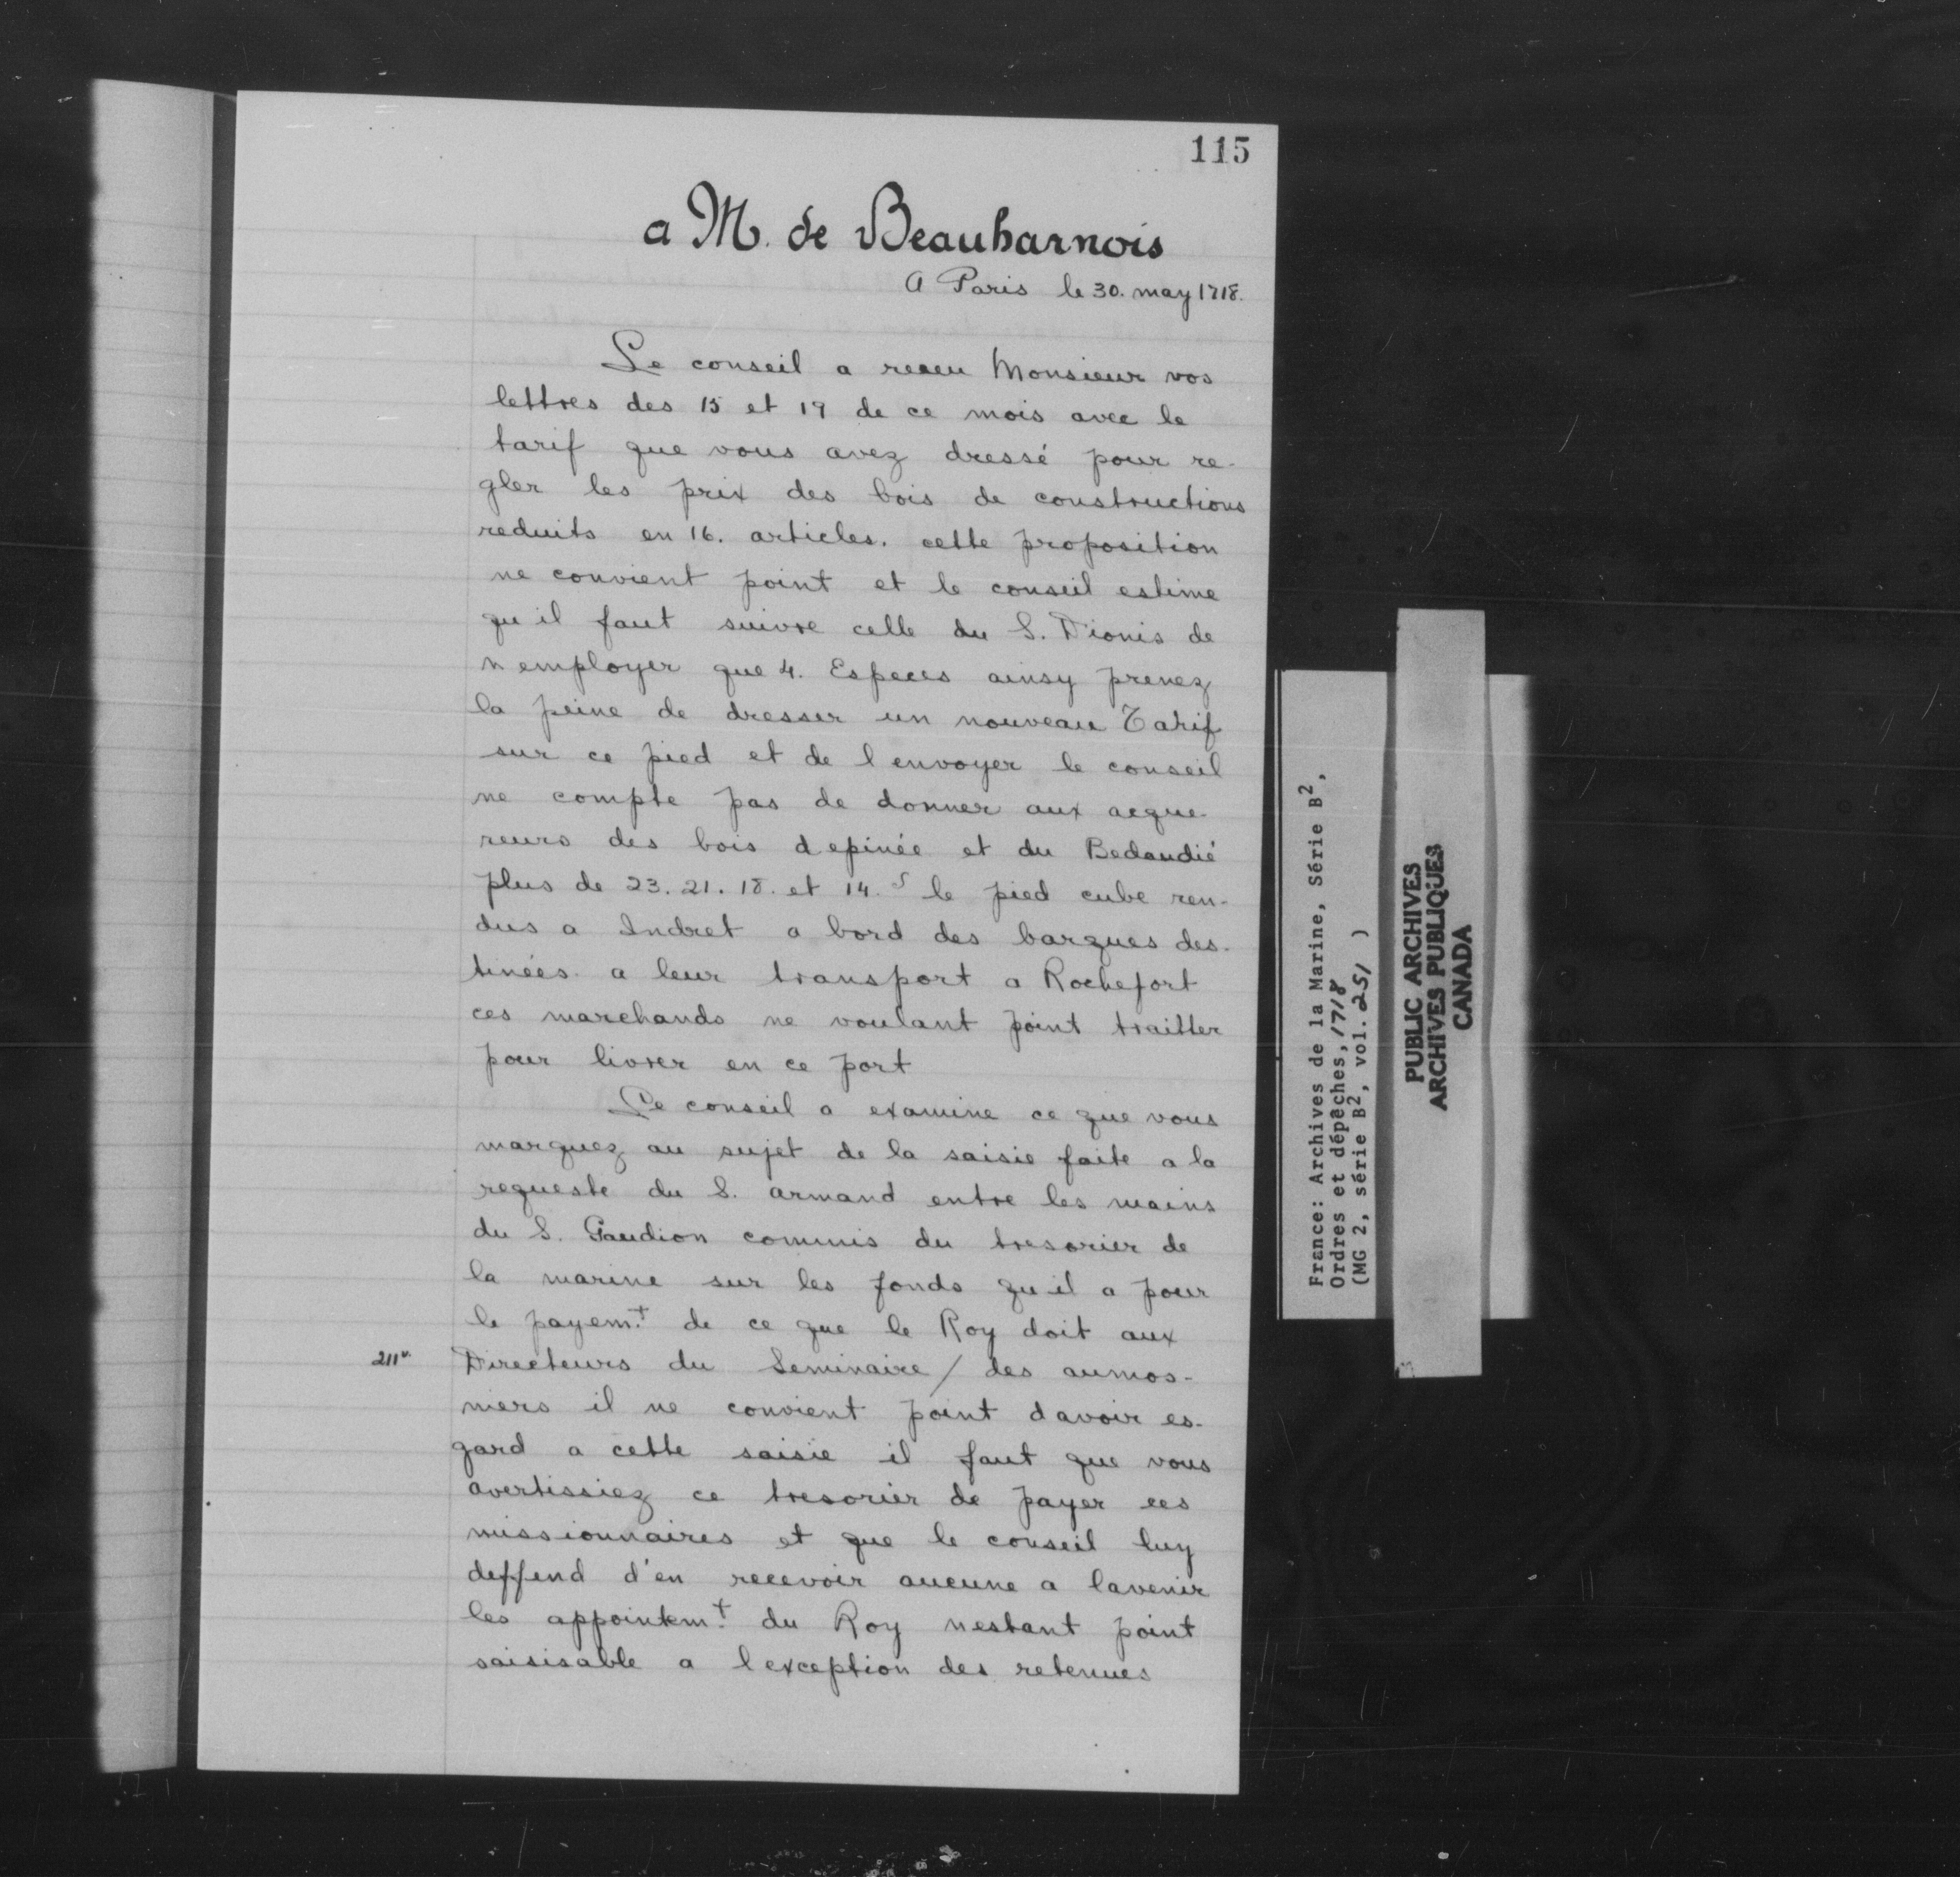 115
a M. de Beauharnois
A Paris le 30. may 1718.
Le conseil a receu Monsieur vos
lettres des 15 et 19 de ce mois avec le
tarif que vous avez dressé pour re-
gler les prix des bois de constructions
reduits en 16. articles. cette proposition
ne convient point et le conseil estime
qu il faut suivre celle du S. Dionis de
n employer que 4. Especes ainsy prenez
la peine de dresser un nouveau Tarif
sur ce pied et de l envoyer le conseil
ne compte pas de donner aux acque-
reurs des bois d epinée et du Bedaudié
plus de 23. 21. 18. et 14. s le pied cube ren-
dus a Indret a bord des barques des-
tinées a leur transport a Rochefort
ces marchands ne voulant point traitter
pour livrer en ce port
Le conseil a examine ce que vous
marquez au sujet de la saisie faite a la
requeste du S. armand entre les mains
du S. Gaudion commis du tresorier de
la marine sur les fonds qu il a pour
le payem.t de ce que le Roy doit aux
211v. Directeurs du Seminaire / des aumos-
niers il ne convient point d avoir es-
gard a cette saisie il faut que vous
avertissiez ce tresorier de payer ces
missionnaires et que le conseil luy
deffend d'en recevoir aucune a lavenir
les appointem.t du Roy nestant point
saisisable a l exception des retenues
France: Archives de la Marine, Série B2,
Ordres et dépêches, 1718
(MG 2, série B2, vol. 251 )
PUBLIC ARCHIVES
ARCHIVES PUBLIQUES
CANADA